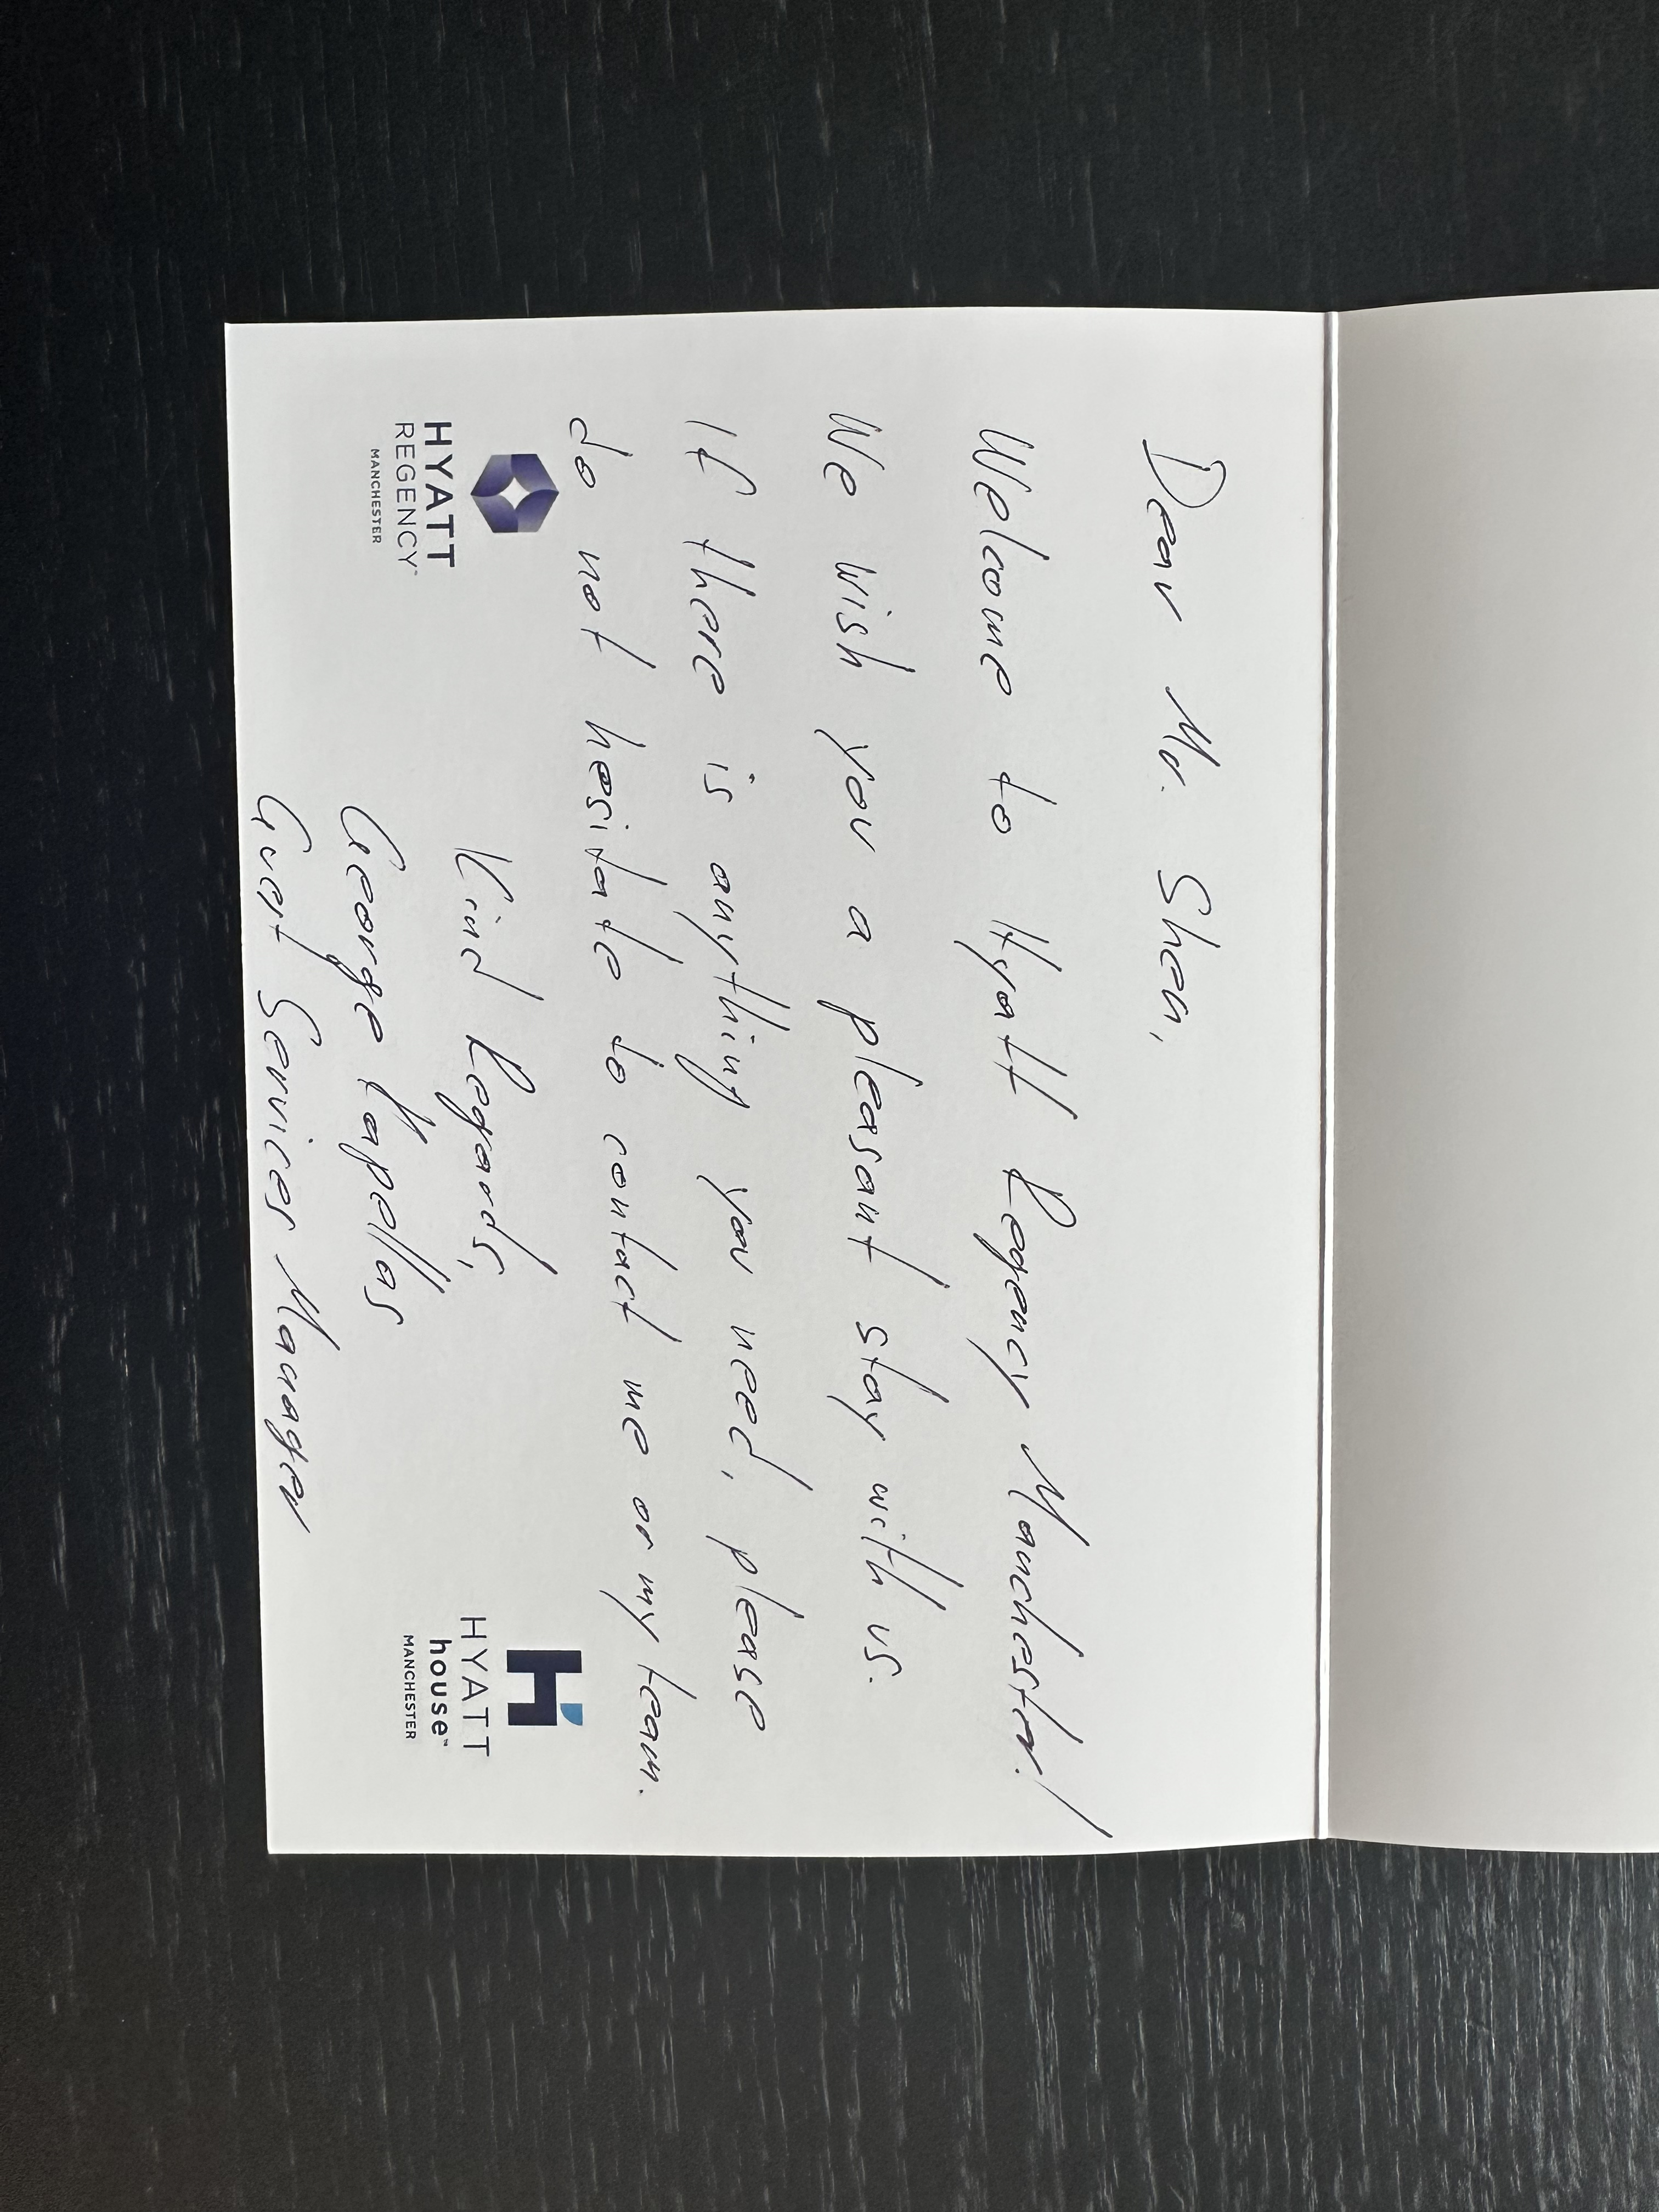 Dear Mr. Shen,
Welcome to Hyatt Regency Manchester!
We wish you a pleasant stay with us.
If there is anything you need, please
do not hesitate to contact me or my team.
Kind Regards,
George Kapellas
Guest Services Manager
HYATT
REGENCY™
MANCHESTER
H
HYATT
house™
MANCHESTER